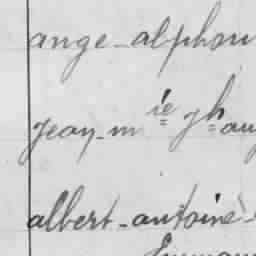 ange-alphon
Jean-m ie Jh au
albert-antoine-
Emman